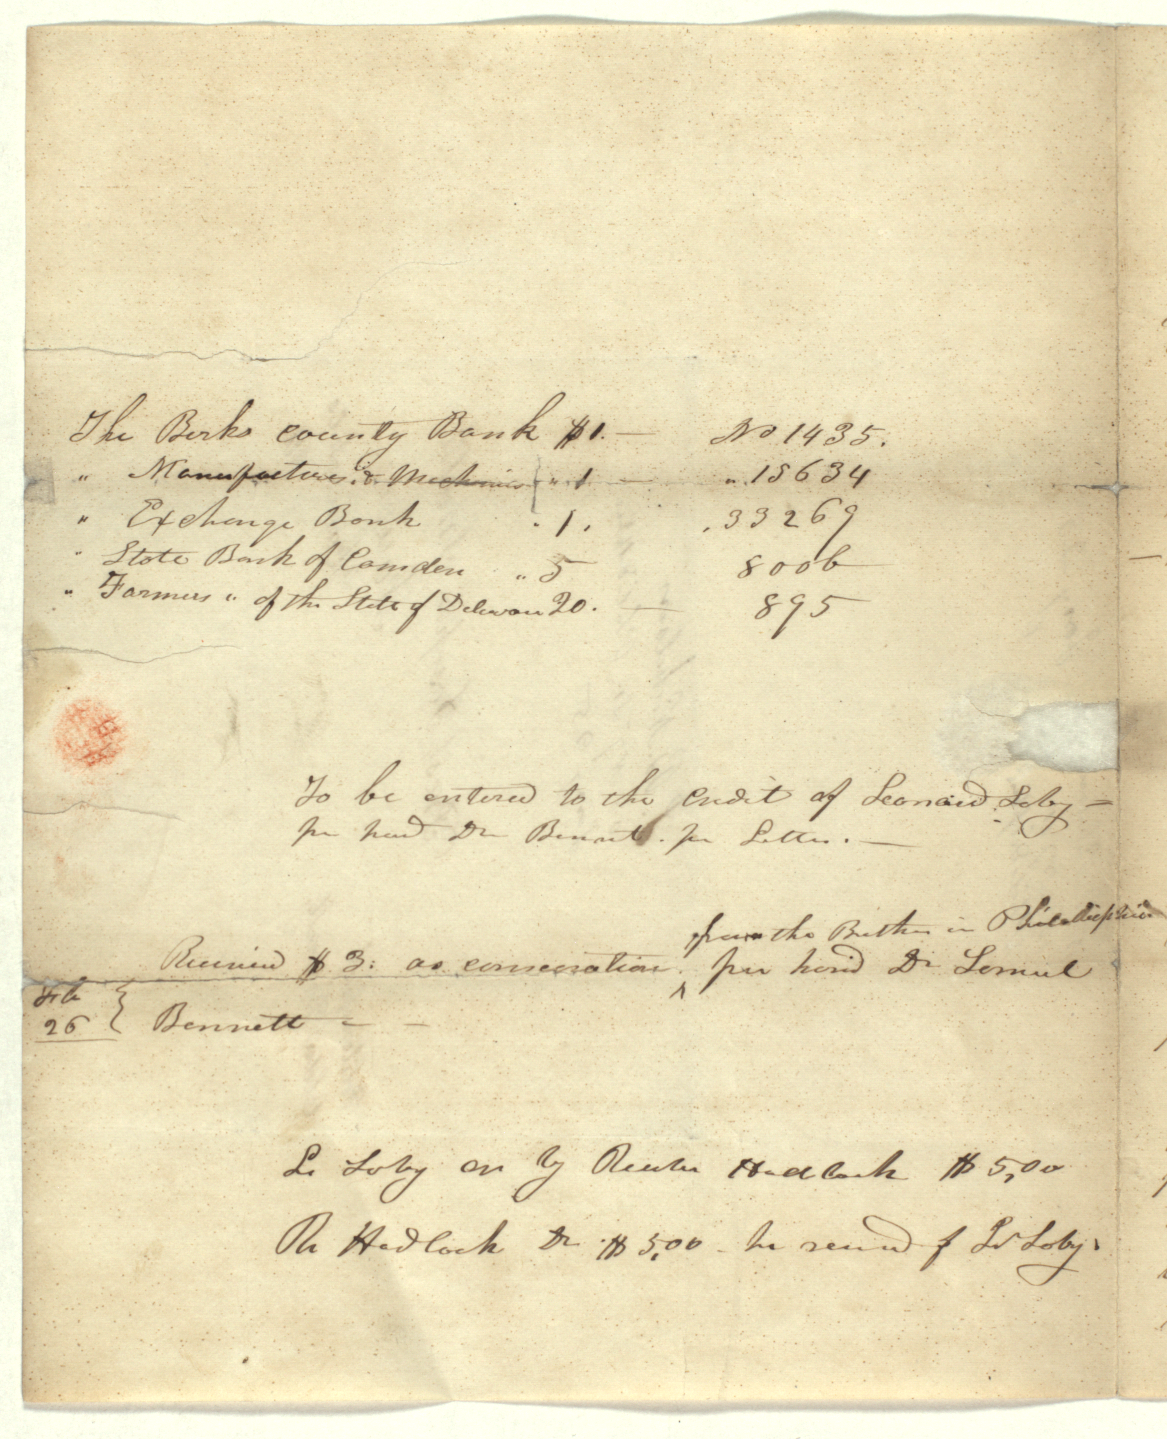 The Berks county Bank $1.— No 1435.
" Manufactures & Mechanics " 1 — " 15634
" Exchange Bank " 1. . 33269
" State Bank of Camden " 5 8006
" Farmers " of the State of Delwar 20. — 895
To be entered to the credit of Leonard Soby =
pr hand Dr Bennett. pr Letter. —
from the Brethren in Philadelphia
Received $3: as consecration. ^ per hand Dr Lemuel
Feb
26 { Bennett — —
L. Soby cr by Reuben Hadlock $5,00
R Hadlock Dr $5,00 he received of Ld Soby.